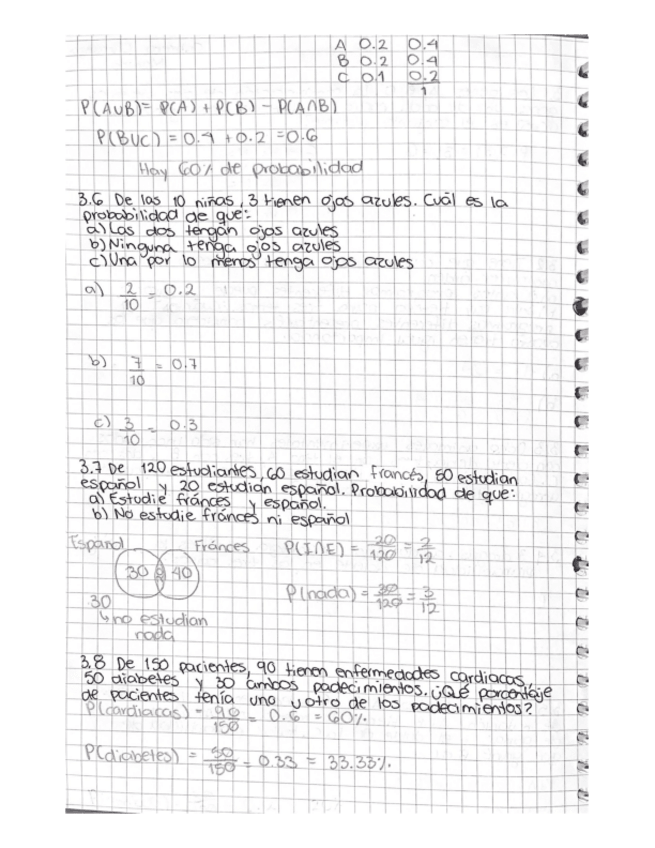 A 0.2 0.4
B 0.2 0.4
C 0.1 0.2
1
P(AUB)= P(A) + P(B) - P(A∩B)
P(BUC) = 0.4 + 0.2 = 0.6
Hay 60% de probabilidad
3.6 De las 10 niñas, 3 tienen ojos azules. Cuál es la
probabilidad de que:
a) Las dos tengan ojos azules
b) Ninguna tenga ojos azules
c) Una por lo menos tenga ojos azules
a) 2/10 = 0.2
b) 7/10 = 0.7
c) 3/10 = 0.3
3.7 De 120 estudiantes, 60 estudian francés, 50 estudian
español y 20 estudian español. Probabilidad de que:
a) Estudie fránces y español.
b) No estudie fránces ni español
Español Fránces P(I∩E) = 20/120 = 2/12
30 40
P(nada) = 30/120 = 3/12
30
↳ no estudian
nada
3.8 De 150 pacientes, 90 tienen enfermedades cardiacas,
50 diabetes y 30 ambos padecimientos. ¿Qué porcentaje
de pacientes tenía uno u otro de los padecimientos?
P(cardiacas) = 90/150 = 0.6 = 60%.
P(diabetes) = 50/150 = 0.33 = 33.33%.